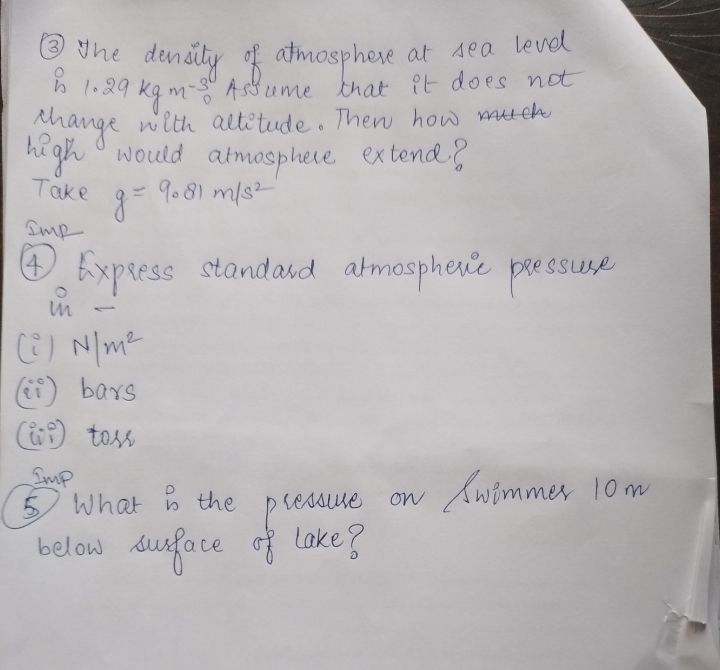 ③ The density of atmosphere at sea level
is 1.29 kg m⁻³. Assume that it does not
change with altitude. Then how much
high would atmosphere extend?
Take g = 9.81 m/s²
Imp
④ Express standard atmospheric pressure
in –
(i) N/m²
(ii) bars
(iii) torr
Imp
⑤ What is the pressure on swimmer 10 m
below surface of lake?